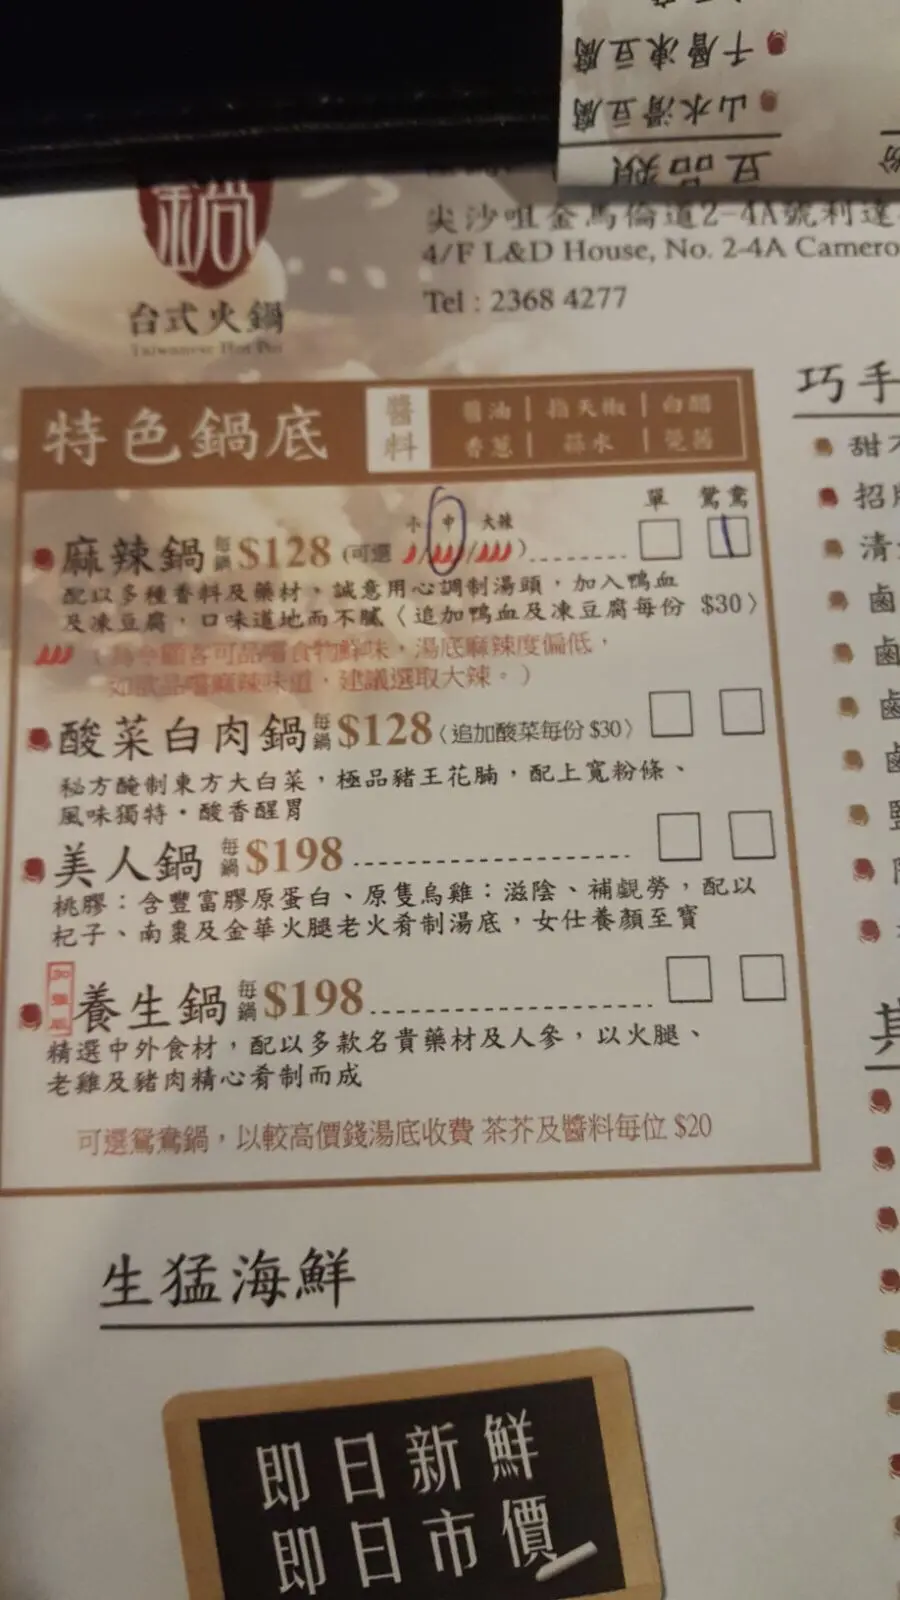 千層凍豆腐
山水滑豆腐
豆品類
鍋
台式火鍋
Taiwanese Hot Pot
尖沙咀金馬倫道2-4A號利達
4/F L&D House, No. 2-4A Camero
Tel : 2368 4277
特色鍋底
醬料
醬油 | 指天椒 | 白醋
香蔥 | 蒜水 |
單 鴛鴦
小 中 大辣
麻辣鍋 每鍋 $128 (可選 / / )
配以多種香料及藥材，誠意用心調制湯頭，加入鴨血
及凍豆腐，口味道地而不膩〈追加鴨血及凍豆腐每份 $30〉
（為令顧客可品嚐食物鮮味，湯底麻辣度偏低，
如欲品嚐麻辣味道，建議選取大辣。）
酸菜白肉鍋 每鍋 $128〈追加酸菜每份 $30〉
秘方醃制東方大白菜，極品豬王花腩，配上寬粉條、
風味獨特・酸香醒胃
美人鍋 每鍋 $198
桃膠：含豐富膠原蛋白、原隻烏雞：滋陰、補觑勞，配以
杞子、南棗及金華火腿老火肴制湯底，女仕養顏至寶
養生鍋 每鍋 $198
精選中外食材，配以多款名貴藥材及人參，以火腿、
老雞及豬肉精心肴制而成
可選鴛鴦鍋，以較高價錢湯底收費 茶芥及醬料每位 $20
生猛海鮮
即日新鮮
即日市價
巧手
甜
招
清
鹵
鹵
其